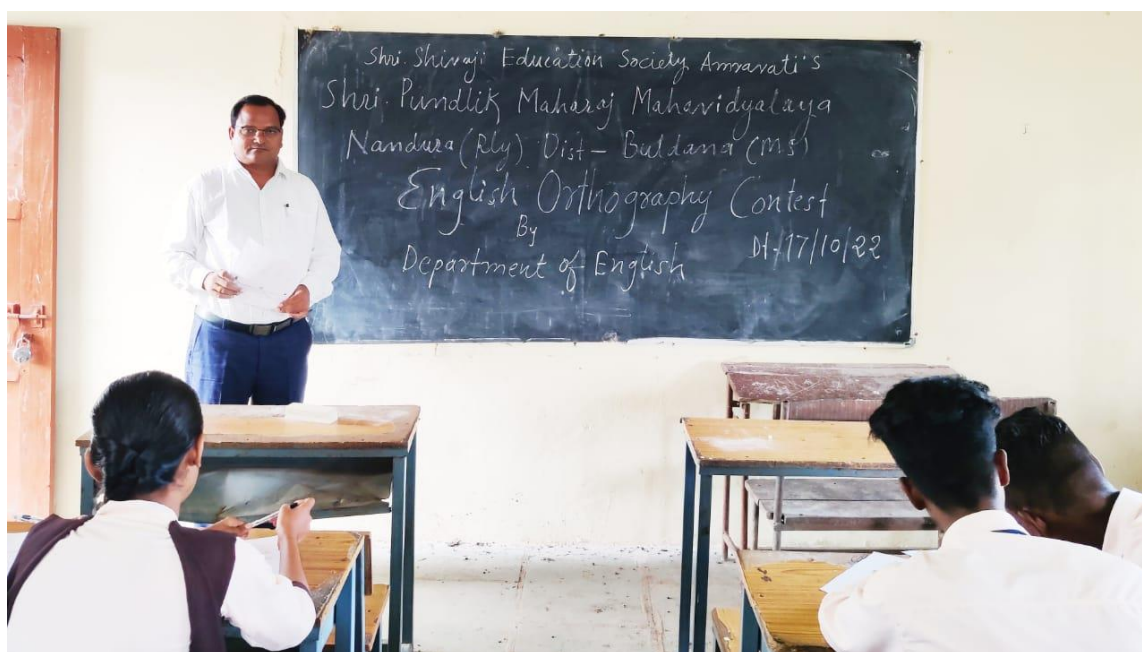 Shri. Shivaji Education Society Amravati's
Shri. Pundlik Maharaj Mahavidyalaya
Nandura (Rly) Dist - Buldana (MS)
English Orthography Contest
By
Department of English Dt-17/10/22